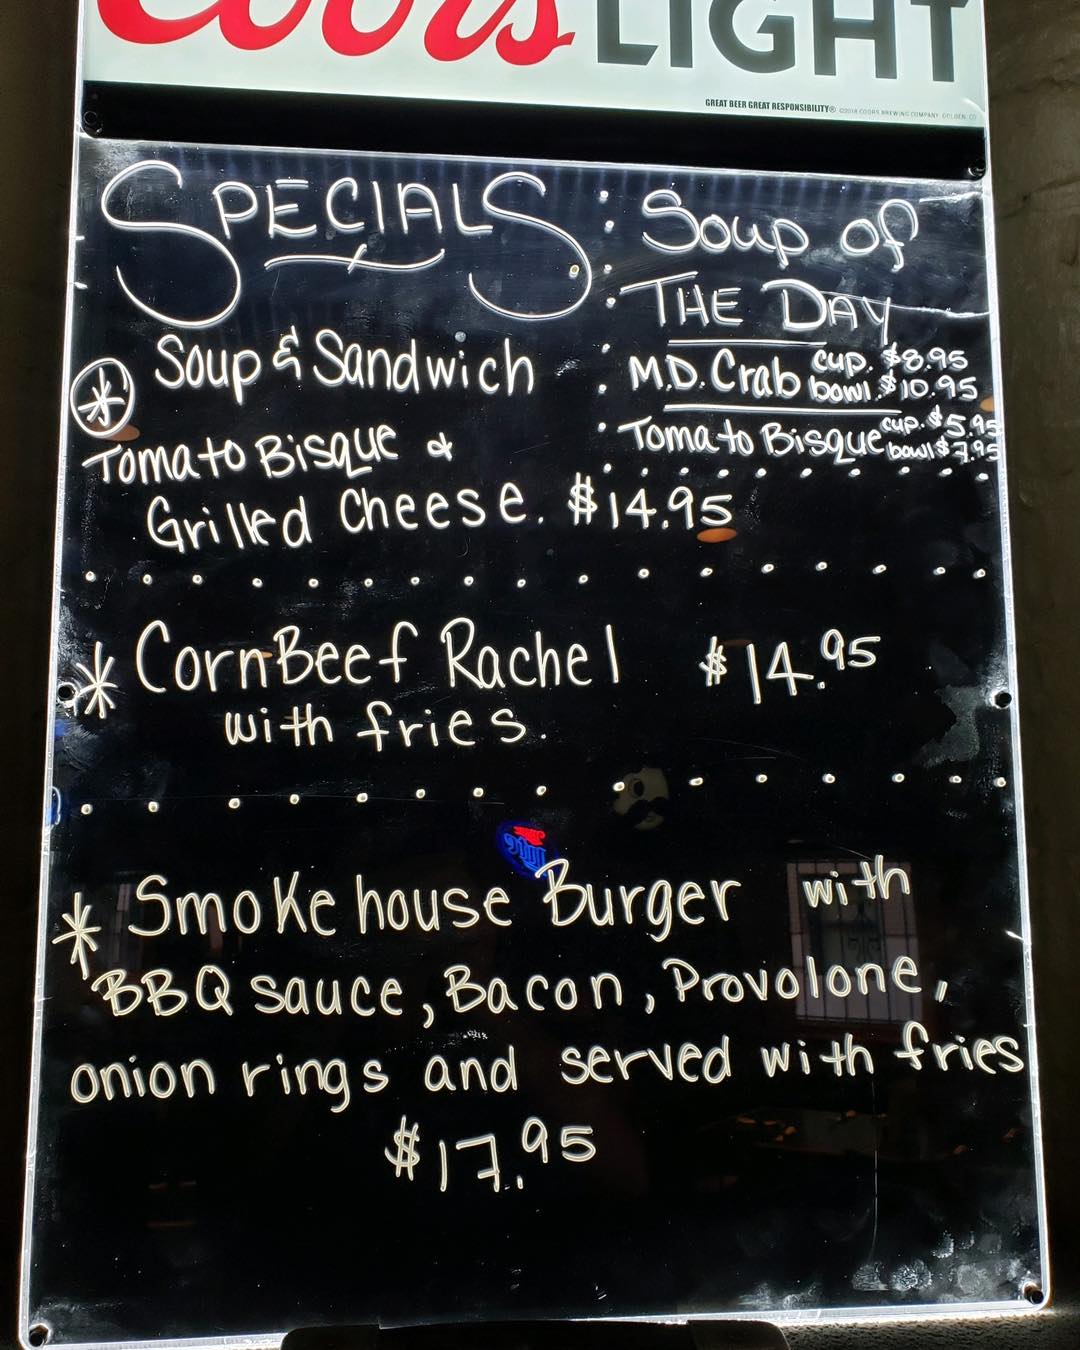 Coors LIGHT
GREAT BEER GREAT RESPONSIBILITY® ©2018 COORS BREWING COMPANY, GOLDEN, CO
SPECIALS
Soup & Sandwich
Tomato Bisque &
Grilled Cheese. $14.95
Soup of
THE DAY
M.D. Crab cup. $8.95
bowl. $10.95
Tomato Bisque cup. $5.95
bowl $7.95
* CornBeef Rachel $14.95
with fries.
* Smokehouse Burger with
BBQ sauce, Bacon, Provolone,
onion rings and served with fries
$17.95